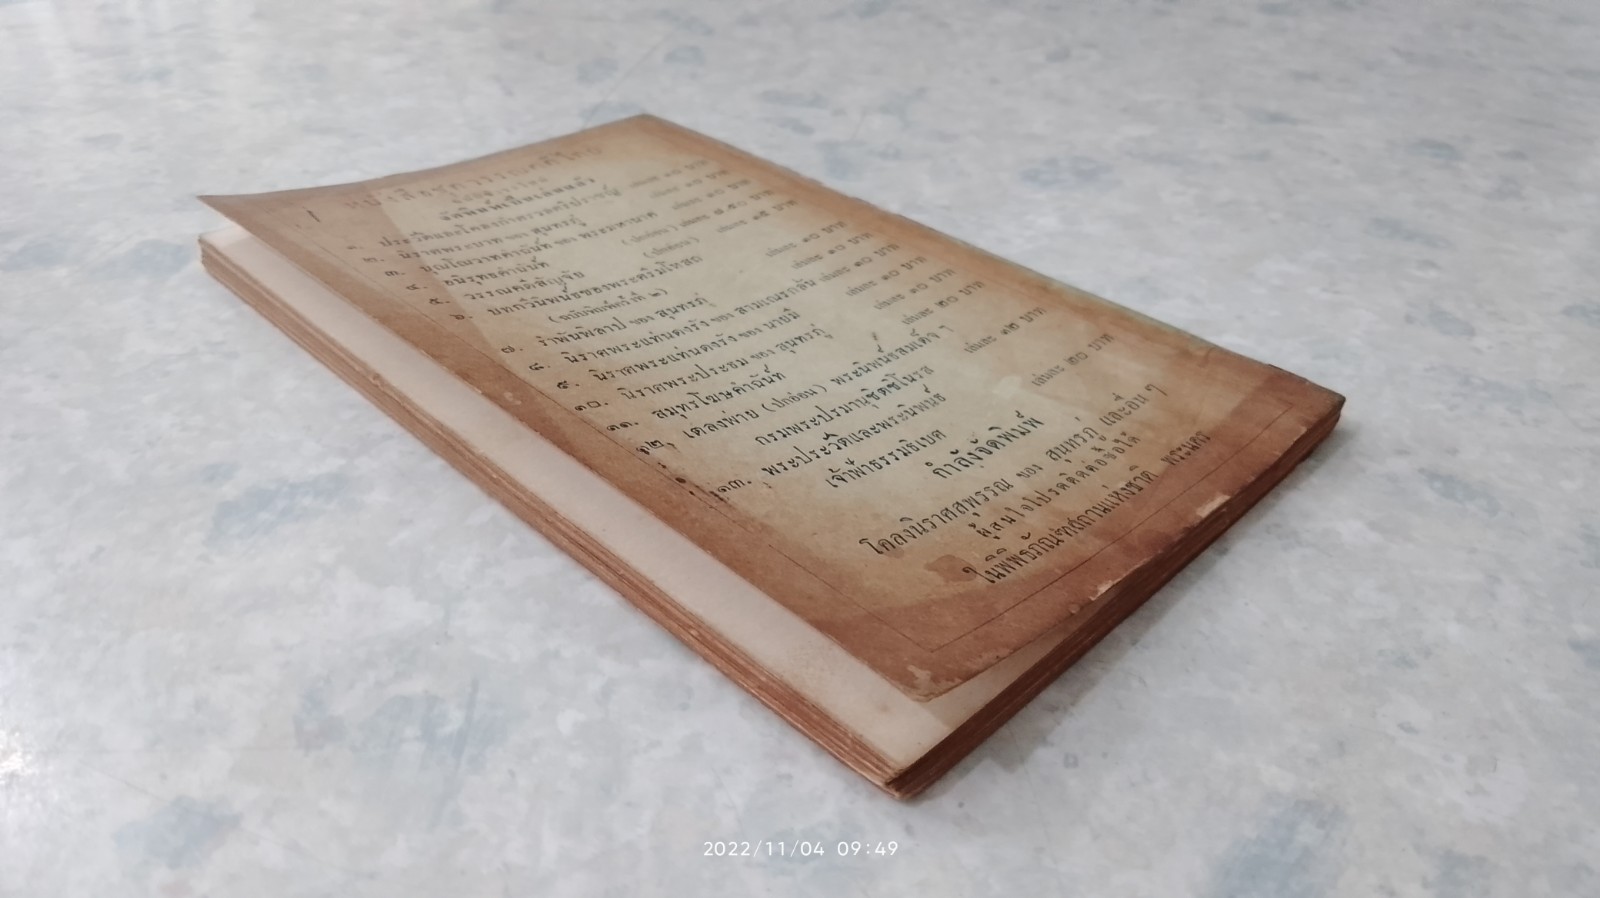 ๑. ประวัติและโคลงกำสรวลศรีปราชญ์ เล่มละ ๑๐ บาท
๒. นิราศพระบาท ของ สุนทรภู่ เล่มละ ๑๐ บาท
๓. บุณโณวาทคำฉันท์ ของ พระมหานาค เล่มละ ๑๐ บาท
๔. อนิรุทธคำฉันท์ (ปกอ่อน) เล่มละ ๗.๕๐ บาท
๕. วรรณคดีสัญจัย (ปกอ่อน) เล่มละ ๑๕ บาท
๖. บทกวีนิพนธ์ของพระศรีมโหสถ
(ฉบับพิมพ์ครั้งที่ ๒) เล่มละ ๑๐ บาท
๗. รำพันพิลาป ของ สุนทรภู่ เล่มละ ๑๐ บาท
๘. นิราศพระแท่นดงรัง ของ สามเณรกลั่น เล่มละ ๑๐ บาท
๙. นิราศพระแท่นดงรัง ของ นายมี เล่มละ ๑๐ บาท
๑๐. นิราศพระประธม ของ สุนทรภู่ เล่มละ ๑๐ บาท
๑๑. สมุทรโฆษคำฉันท์ เล่มละ ๒๐ บาท
๑๒. เตลงพ่าย (ปกอ่อน) พระนิพนธ์สมเด็จ ฯ
กรมพระปรมานุชิตชิโนรส เล่มละ ๑๒ บาท
๑๓. พระประวัติและพระนิพนธ์
เจ้าฟ้าธรรมธิเบศ เล่มละ ๒๐ บาท
กำลังจัดพิมพ์
โคลงนิราศสุพรรณ ของ สุนทรภู่ และอื่น ๆ
ผู้สนใจโปรดติดต่อซื้อได้
ในพิพิธภัณฑสถานแห่งชาติ พระนคร
2022/11/04 09:49